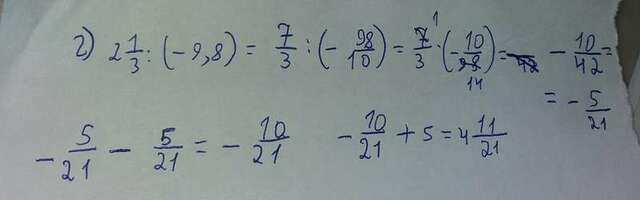 г) 2 1/3 : (-9,8) = 7/3 : (- 98/10) = 7/3 · (- 10/98) = - 10/42 =
1
14
= - 5/21
- 5/21 - 5/21 = - 10/21 - 10/21 + 5 = 4 11/21